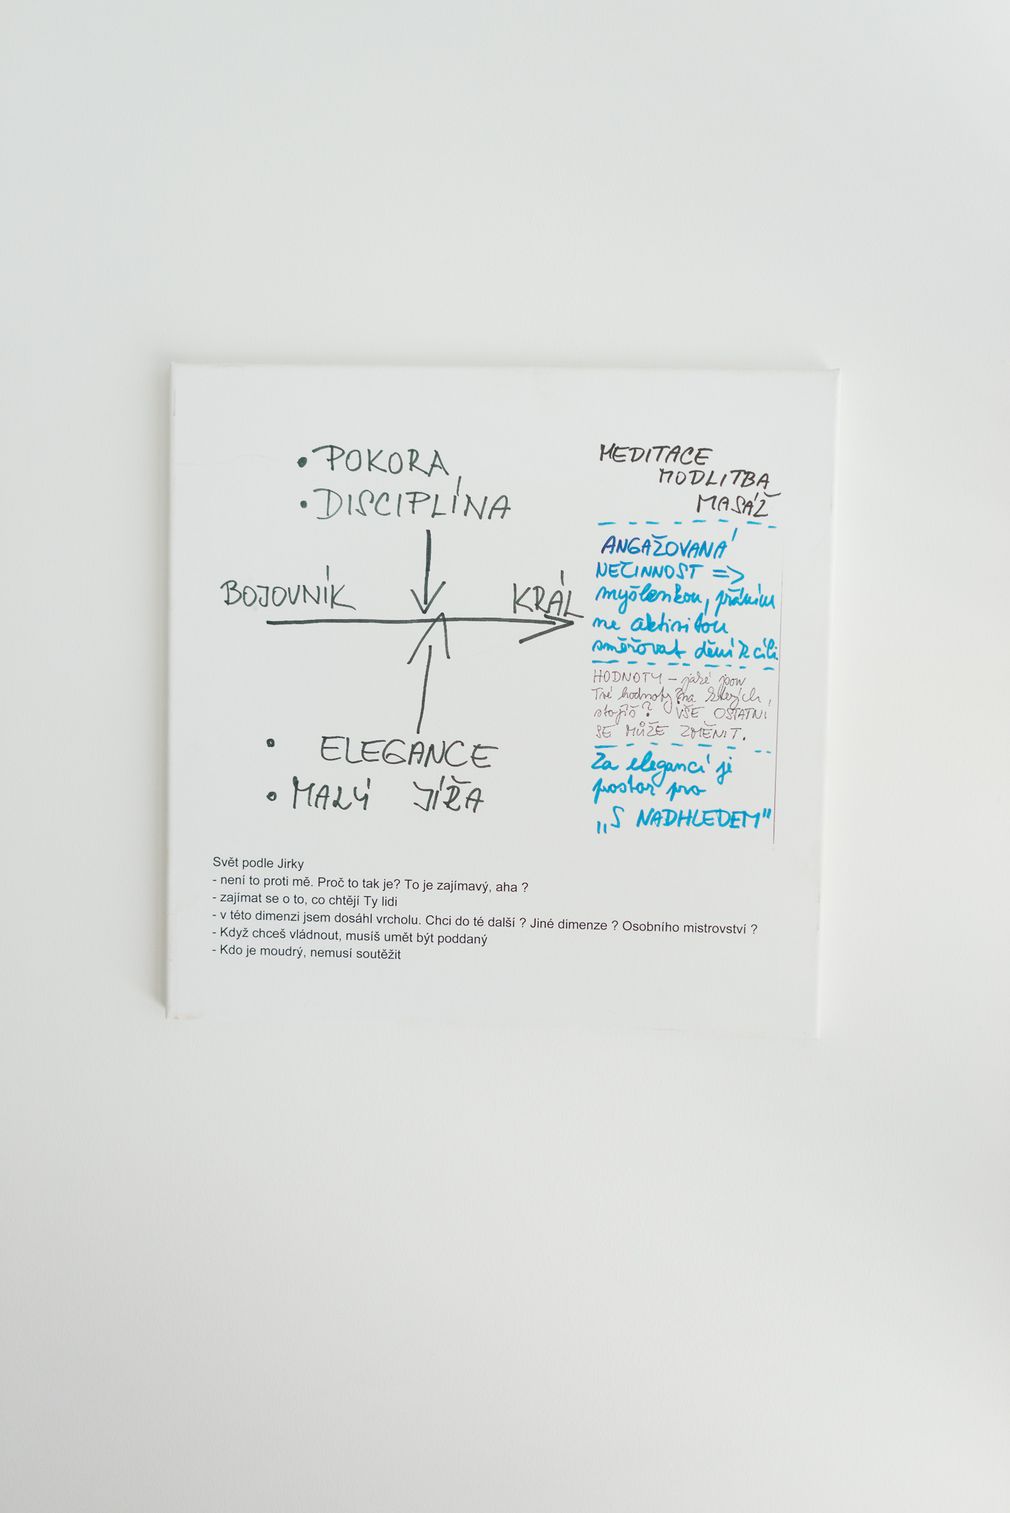 • POKORA
• DISCIPLÍNA
BOJOVNÍK
KRÁL
• ELEGANCE
• MALÝ JÍŘA
MEDITACE
MODLITBA
MASÁŽ
ANGAŽOVANÁ
NEČINNOST =>
myšlenkou, přáním
ne aktivitou
směřovat dění k cíli
HODNOTY – jaké jsou
Tvé hodnoty na kterých
stojíš? VŠE OSTATNÍ
SE MŮŽE ZMĚNIT.
Za elegancí je
prostor pro
„S NADHLEDEM"
Svět podle Jirky
- není to proti mě. Proč to tak je? To je zajímavý, aha ?
- zajímat se o to, co chtějí Ty lidi
- v této dimenzi jsem dosáhl vrcholu. Chci do té další ? Jiné dimenze ? Osobního mistrovství ?
- Když chceš vládnout, musíš umět být poddaný
- Kdo je moudrý, nemusí soutěžit